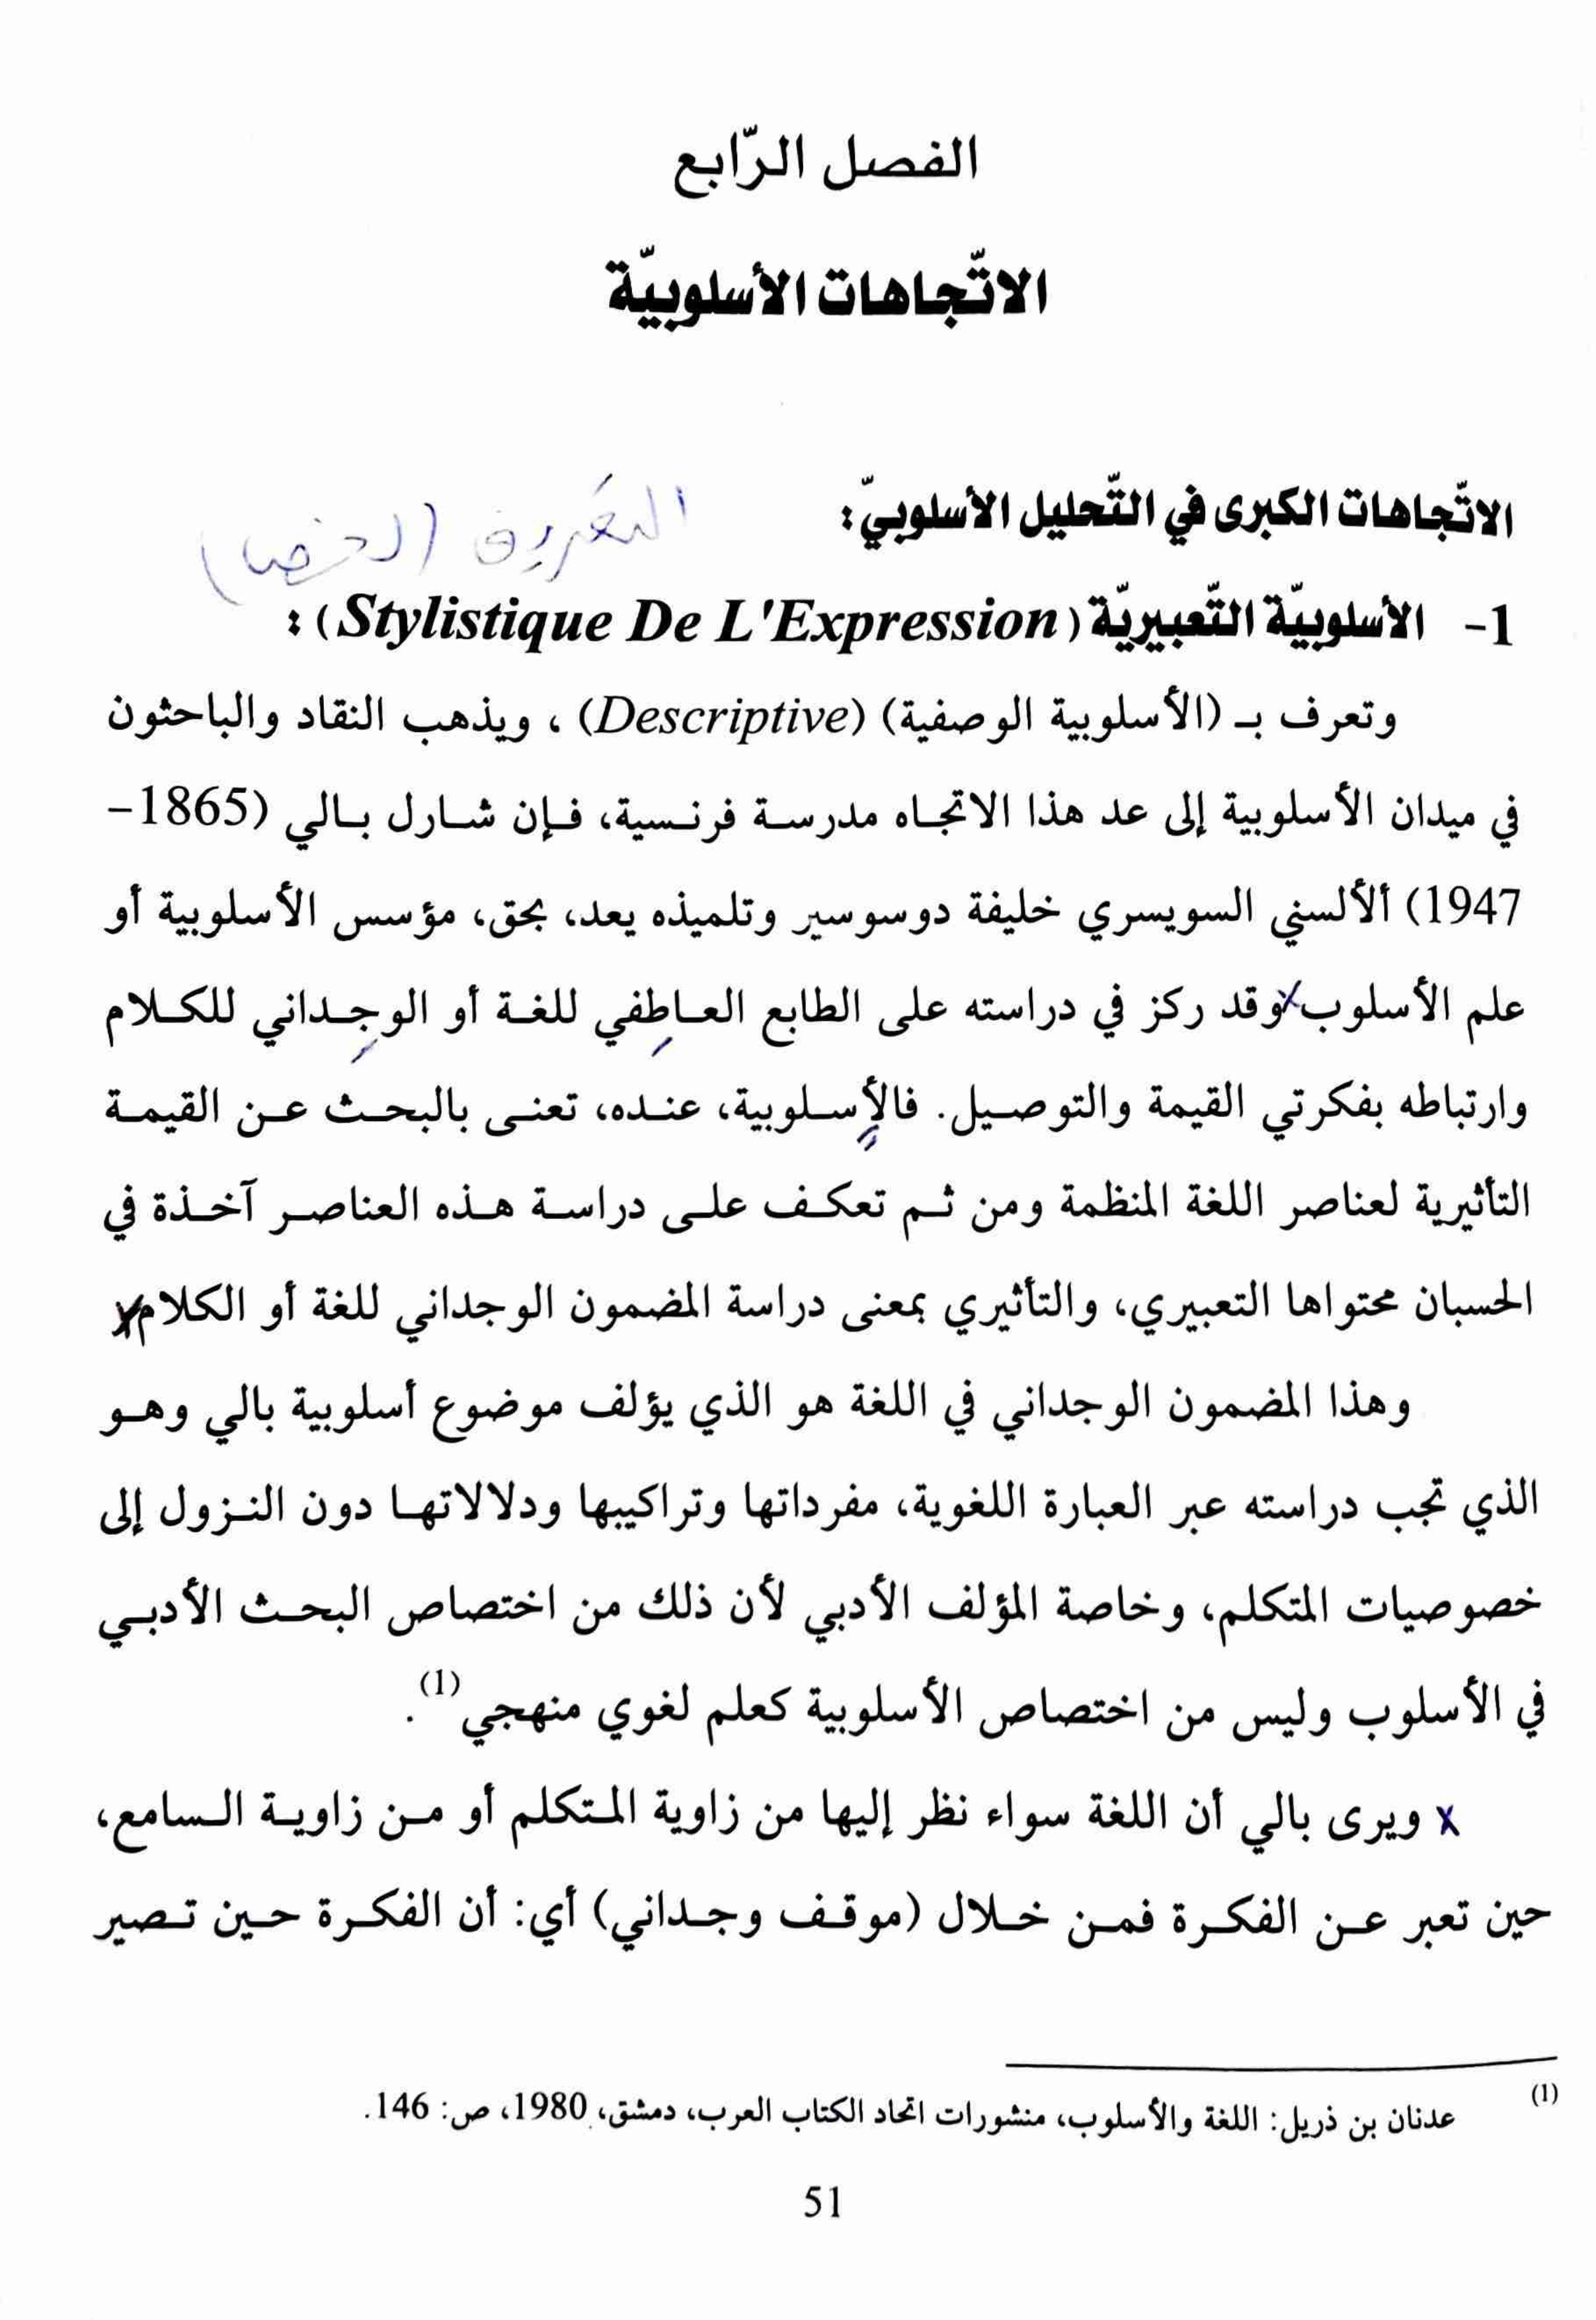 الفصل الرّابع
الاتّجاهات الأسلوبيّة
الاتّجاهات الكبرى في التّحليل الأسلوبيّ:
التعريف
1- الأسلوبيّة التّعبيريّة (Stylistique De L'Expression):
وتعرف بـ (الأسلوبية الوصفية) (Descriptive)، ويذهب النقاد والباحثون
في ميدان الأسلوبية إلى عد هذا الاتجاه مدرسة فرنسية، فإن شارل بالي (1865-
1947) ألألسني السويسري خليفة دوسوسير وتلميذه يعد، بحق، مؤسس الأسلوبية أو
علم الأسلوب وقد ركز في دراسته على الطابع العاطفي للغة أو الوجداني للكلام
وارتباطه بفكرتي القيمة والتوصيل. فالأسلوبية، عنده، تعنى بالبحث عن القيمة
التأثيرية لعناصر اللغة المنظمة ومن ثم تعكف على دراسة هذه العناصر آخذة في
الحسبان محتواها التعبيري، والتأثيري بمعنى دراسة المضمون الوجداني للغة أو الكلام
وهذا المضمون الوجداني في اللغة هو الذي يؤلف موضوع أسلوبية بالي وهو
الذي تجب دراسته عبر العبارة اللغوية، مفرداتها وتراكيبها ودلالاتها دون النزول إلى
خصوصيات المتكلم، وخاصة المؤلف الأدبي لأن ذلك من اختصاص البحث الأدبي
في الأسلوب وليس من اختصاص الأسلوبية كعلم لغوي منهجي(1).
x ويرى بالي أن اللغة سواء نظر إليها من زاوية المتكلم أو من زاوية السامع،
حين تعبر عن الفكرة فمن خلال (موقف وجداني) أي: أن الفكرة حين تصير
(1) عدنان بن ذريل: اللغة والأسلوب، منشورات اتحاد الكتاب العرب، دمشق، 1980، ص: 146.
51